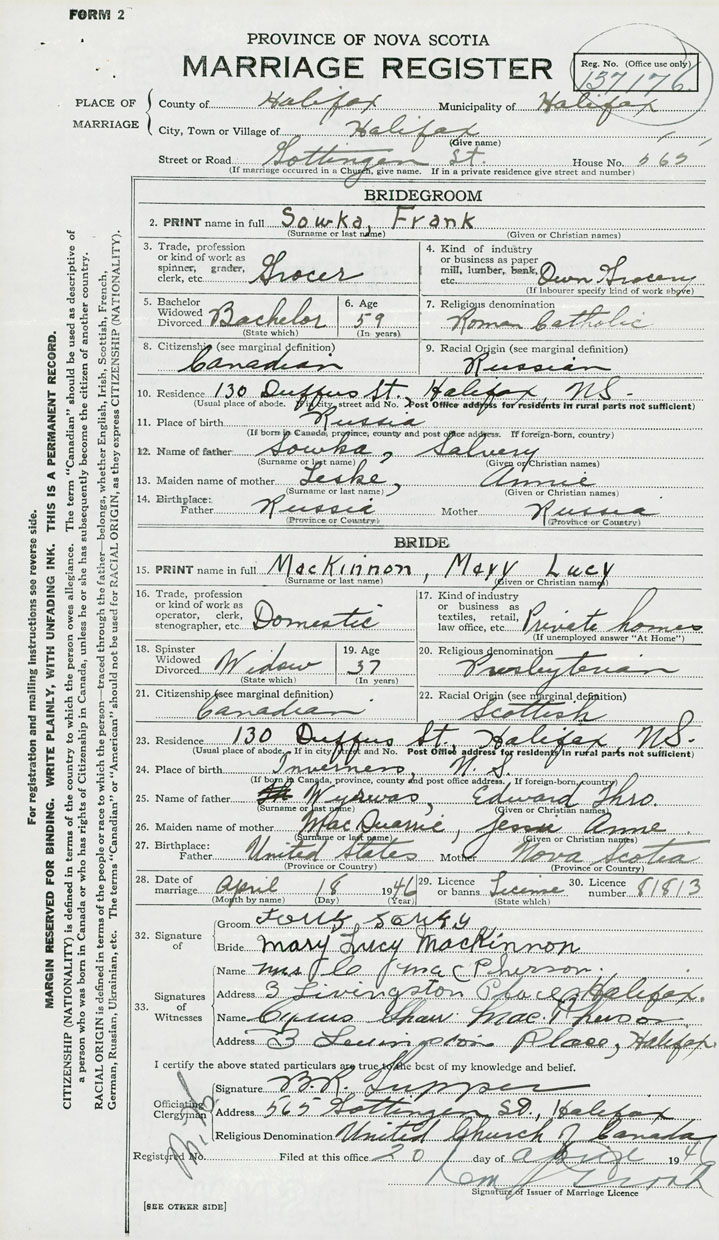 FORM 2
PROVINCE OF NOVA SCOTIA
MARRIAGE REGISTER
Reg. No. (Office use only)
137176
PLACE OF MARRIAGE
County of Halifax Municipality of Halifax
City, Town or Village of Halifax
(Give name)
Street or Road Gottingen St. House No. 565
(If marriage occurred in a Church, give name. If in a private residence give street and number)
BRIDEGROOM
2. PRINT name in full Sowka, Frank
(Surname or last name) (Given or Christian names)
3. Trade, profession or kind of work as spinner, grader, clerk, etc. Grocer
4. Kind of industry or business as paper mill, lumber, bank, etc. Own Grocery
(If labourer specify kind of work above)
5. Bachelor Widowed Divorced Bachelor
(State which)
6. Age 59
(In years)
7. Religious denomination
Roman Catholic
8. Citizenship (see marginal definition)
Canadian
9. Racial Origin (see marginal definition)
Russian
10. Residence 130 Duffus St., Halifax, NS.
(Usual place of abode. If in city, street and No. Post Office address for residents in rural parts not sufficient)
11. Place of birth Russia
(If born in Canada, province, county and post office address. If foreign-born, country)
12. Name of father Sowka, Salvery
(Surname or last name) (Given or Christian names)
13. Maiden name of mother Leske, Annie
(Surname or last name) (Given or Christian names)
14. Birthplace: Father Russia Mother Russia
(Province or Country) (Province or Country)
BRIDE
15. PRINT name in full MacKinnon, Mary Lucy
(Surname or last name) (Given or Christian names)
16. Trade, profession or kind of work as operator, clerk, stenographer, etc. Domestic
17. Kind of industry or business as textiles, retail, law office, etc. Private homes
(If unemployed answer "At Home")
18. Spinster Widowed Divorced Widow
(State which)
19. Age 37
(In years)
20. Religious denomination
Presbyterian
21. Citizenship (see marginal definition)
Canadian
22. Racial Origin (see marginal definition)
Scottish
23. Residence 130 Duffus St., Halifax, NS.
(Usual place of abode. If in city street and No. Post Office address for residents in rural parts not sufficient)
24. Place of birth Inverness, N.S.
(If born in Canada, province, county and post office address. If foreign-born, country)
25. Name of father Edward Thro.
(Surname or last name) (Given or Christian names)
26. Maiden name of mother MacQuarrie, Jessie Anne
(Surname or last name) (Given or Christian names)
27. Birthplace: Father United States Mother Nova Scotia
(Province or Country) (Province or Country)
28. Date of marriage April 18 1946
(Month by name) (Day) (Year)
29. Licence or banns License
(State which)
30. Licence number 81813
32. Signature of
Groom
Bride Mary Lucy MacKinnon
33. Signatures of Witnesses
Name Mrs MacPherson.
Address 3 Livingston Place Halifax.
Name Cyrus Shaw MacPherson
Address 3 Livingston Place, Halifax
I certify the above stated particulars are true to the best of my knowledge and belief.
Officiating Clergyman
Signature B.R. Tupper
Address 565 Gottingen St., Halifax
Religious Denomination United Church of Canada
Registered No. Filed at this office 20 day of April 1946
Signature of Issuer of Marriage Licence
[SEE OTHER SIDE]
For registration and mailing instructions see reverse side.
MARGIN RESERVED FOR BINDING. WRITE PLAINLY, WITH UNFADING INK. THIS IS A PERMANENT RECORD.
CITIZENSHIP (NATIONALITY) is defined in terms of the country to which the person owes allegiance. The term "Canadian" should be used as descriptive of
a person who was born in Canada or who has rights of Citizenship in Canada, unless he or she has subsequently become the citizen of another country.
RACIAL ORIGIN is defined in terms of the people or race to which the person—traced through the father—belongs, whether English, Irish, Scottish, French,
German, Russian, Ukrainian, etc. The terms "Canadian" or "American" should not be used for RACIAL ORIGIN, as they express CITIZENSHIP (NATIONALITY).